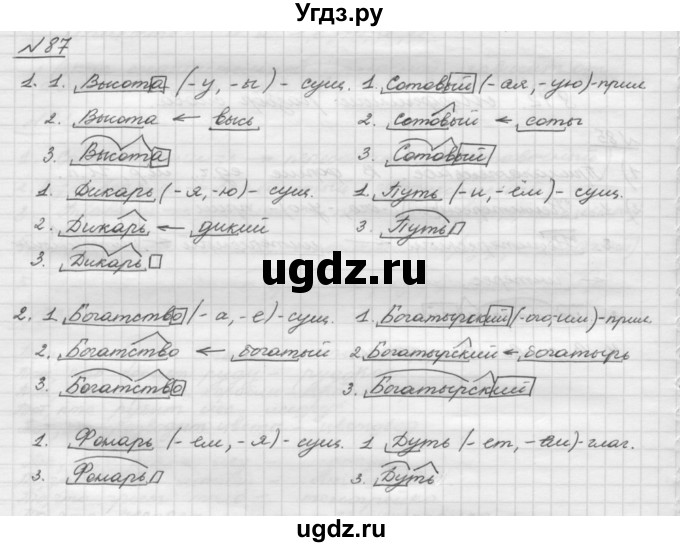 Угдз.ру
№87
1. 1. Высота (-у, -ы) - сущ. 1. Сотовый (-ая, -ую)-прил
2. Высота ← высь 2. Сотовый ← соты
3. Высота 3. Сотовый
1. Дикарь (-я, -ю) - сущ. 1. Путь (-и, -ём) - сущ.
2. Дикарь ← дикий 3. Путь
3. Дикарь
ugdz.ru
2. 1. Богатство (-а, -е) - сущ. 1. Богатырский (-ого, -им)-прил.
2. Богатство ← богатый 2. Богатырский ← богатырь
3. Богатство 3. Богатырский
1. Фонарь (-ем, -я) - сущ. 1 Дуть (-ет, -ем) - глаг.
3. Фонарь 3. Дуть
ugdz.ru